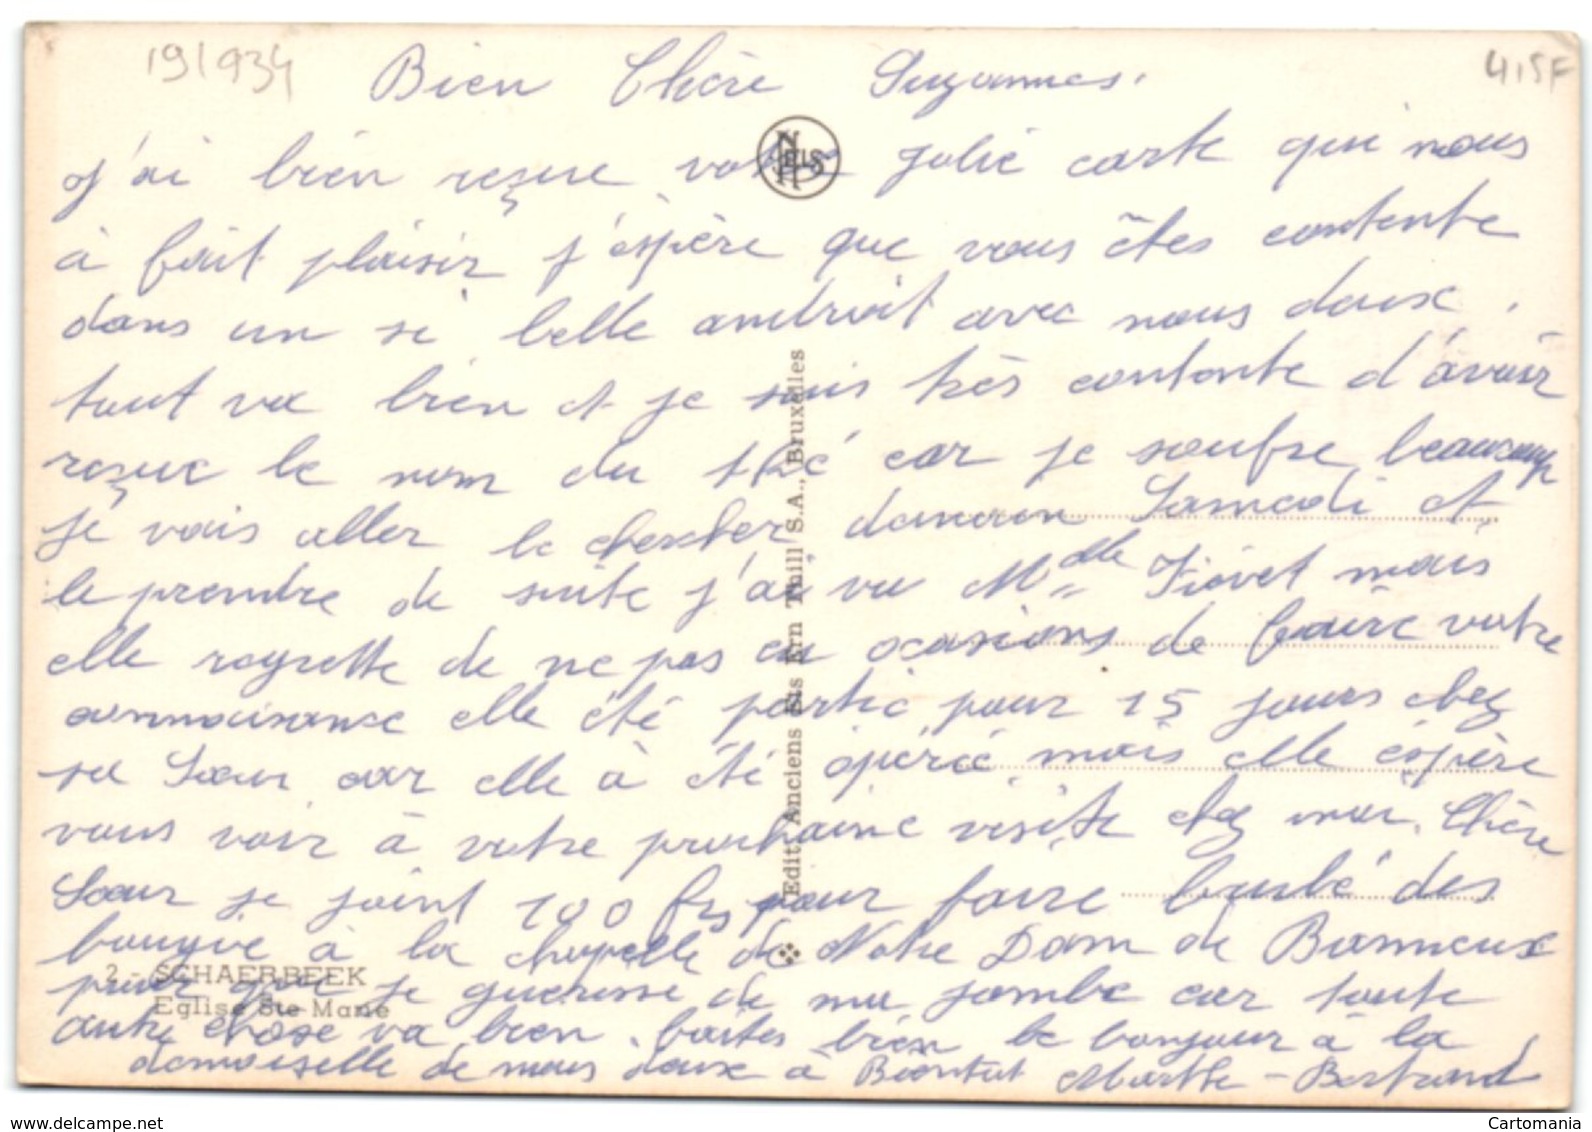 191934
4,5F
Bien Chère Suzannes.
j'ai bien reçue votre jolie carte qui nous
à fait plaisir j'éspère que vous êtes contente
dans un si belle andruit avec nous deux.
tout va bien et je suis très contente d'avoir
reçue le nom du thé car je soufre beaucoup
je vais aller le chercher demain Samedi et
le prendre de suite j'ai vu Mdlle Fiévet mais
elle regrette de ne pas eu ocasions de faire votre
connaissance elle été partie pour 15 jours chez
sa Sœur car elle à été opérée mais elle éspère
vous voir à votre prochaine visite chez moi. Chère
Sœur je joint 100 frs pour faire brulé des
bougie à la chapelle de Notre Dam de Banneux
prier que je guerisse de ma jambe car toute
autre chose va bien. faites bien le bonjour à la
demoiselle de nous deux à Biontut Marthe - Bertrand
NELS
Edit. Anciens Ets Ern Thill S.A., Bruxelles
2 - SCHAERBEEK
Eglise Ste-Marie
www.delcampe.net
Cartomania